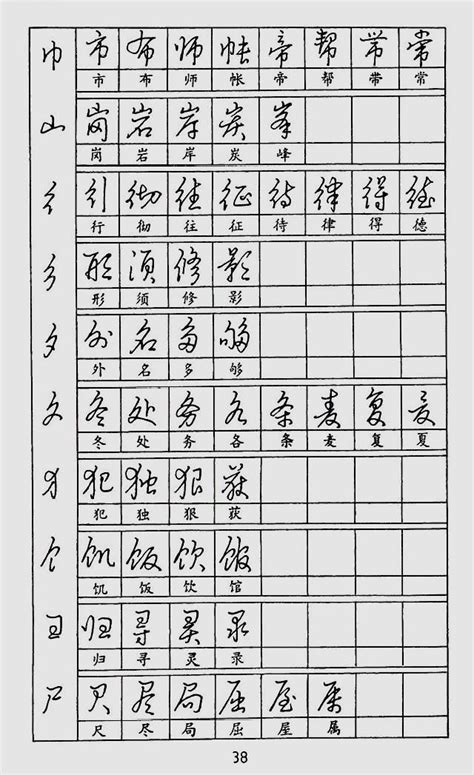 巾 市 布 师 帐 帝 帮 带 常
市 布 师 帐 帝 帮 带 常
山 岗 岩 岸 炭 峰
岗 岩 岸 炭 峰
彳 行 彻 往 征 待 律 得 德
行 彻 往 征 待 律 得 德
彡 形 须 修 影
形 须 修 影
夕 外 名 多 够
外 名 多 够
夂 冬 处 务 各 条 麦 复 夏
冬 处 务 各 条 麦 复 夏
犭 犯 独 狠 获
犯 独 狠 获
饣 饥 饭 饮 馆
饥 饭 饮 馆
彐 归 寻 灵 录
归 寻 灵 录
尸 尺 尽 局 屈 屋 属
尺 尽 局 屈 屋 属
38